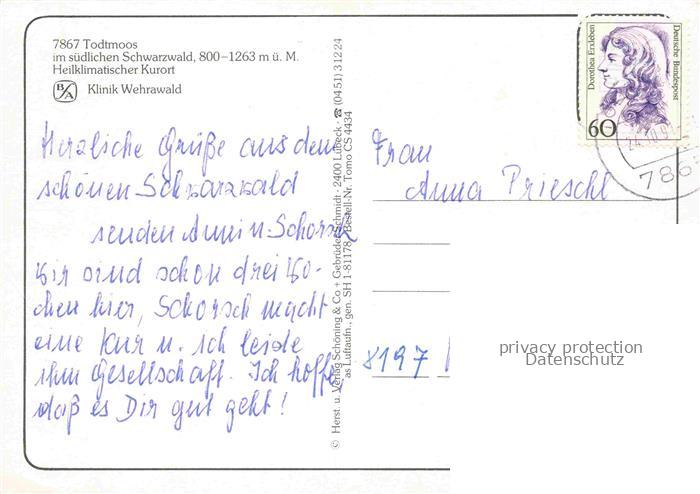 7867 Todtmoos
im südlichen Schwarzwald, 800–1263 m ü. M.
Heilklimatischer Kurort
B/A Klinik Wehrawald
Herzliche Grüße aus dem
schönen Schwarzwald
senden Anni u. Schorsch
Wir sind schon drei Wo-
chen hier, Schorsch macht
eine Kur u. ich leiste
ihm Gesellschaft. Ich hoffe
daß es Dir gut geht!
© Herst. u. Verlag Schöning & Co + Gebrüder Schmidt · 2400 Lübeck · ☎ (0451) 31224
as Luftaufn., gen. SH 1-81178 Bestell-Nr. Tomo CS 4434
Dorothea Erxleben
Deutsche Bundespost
60
24.10.9
786
Frau
Anna Prieschl
8197
privacy protection
Datenschutz